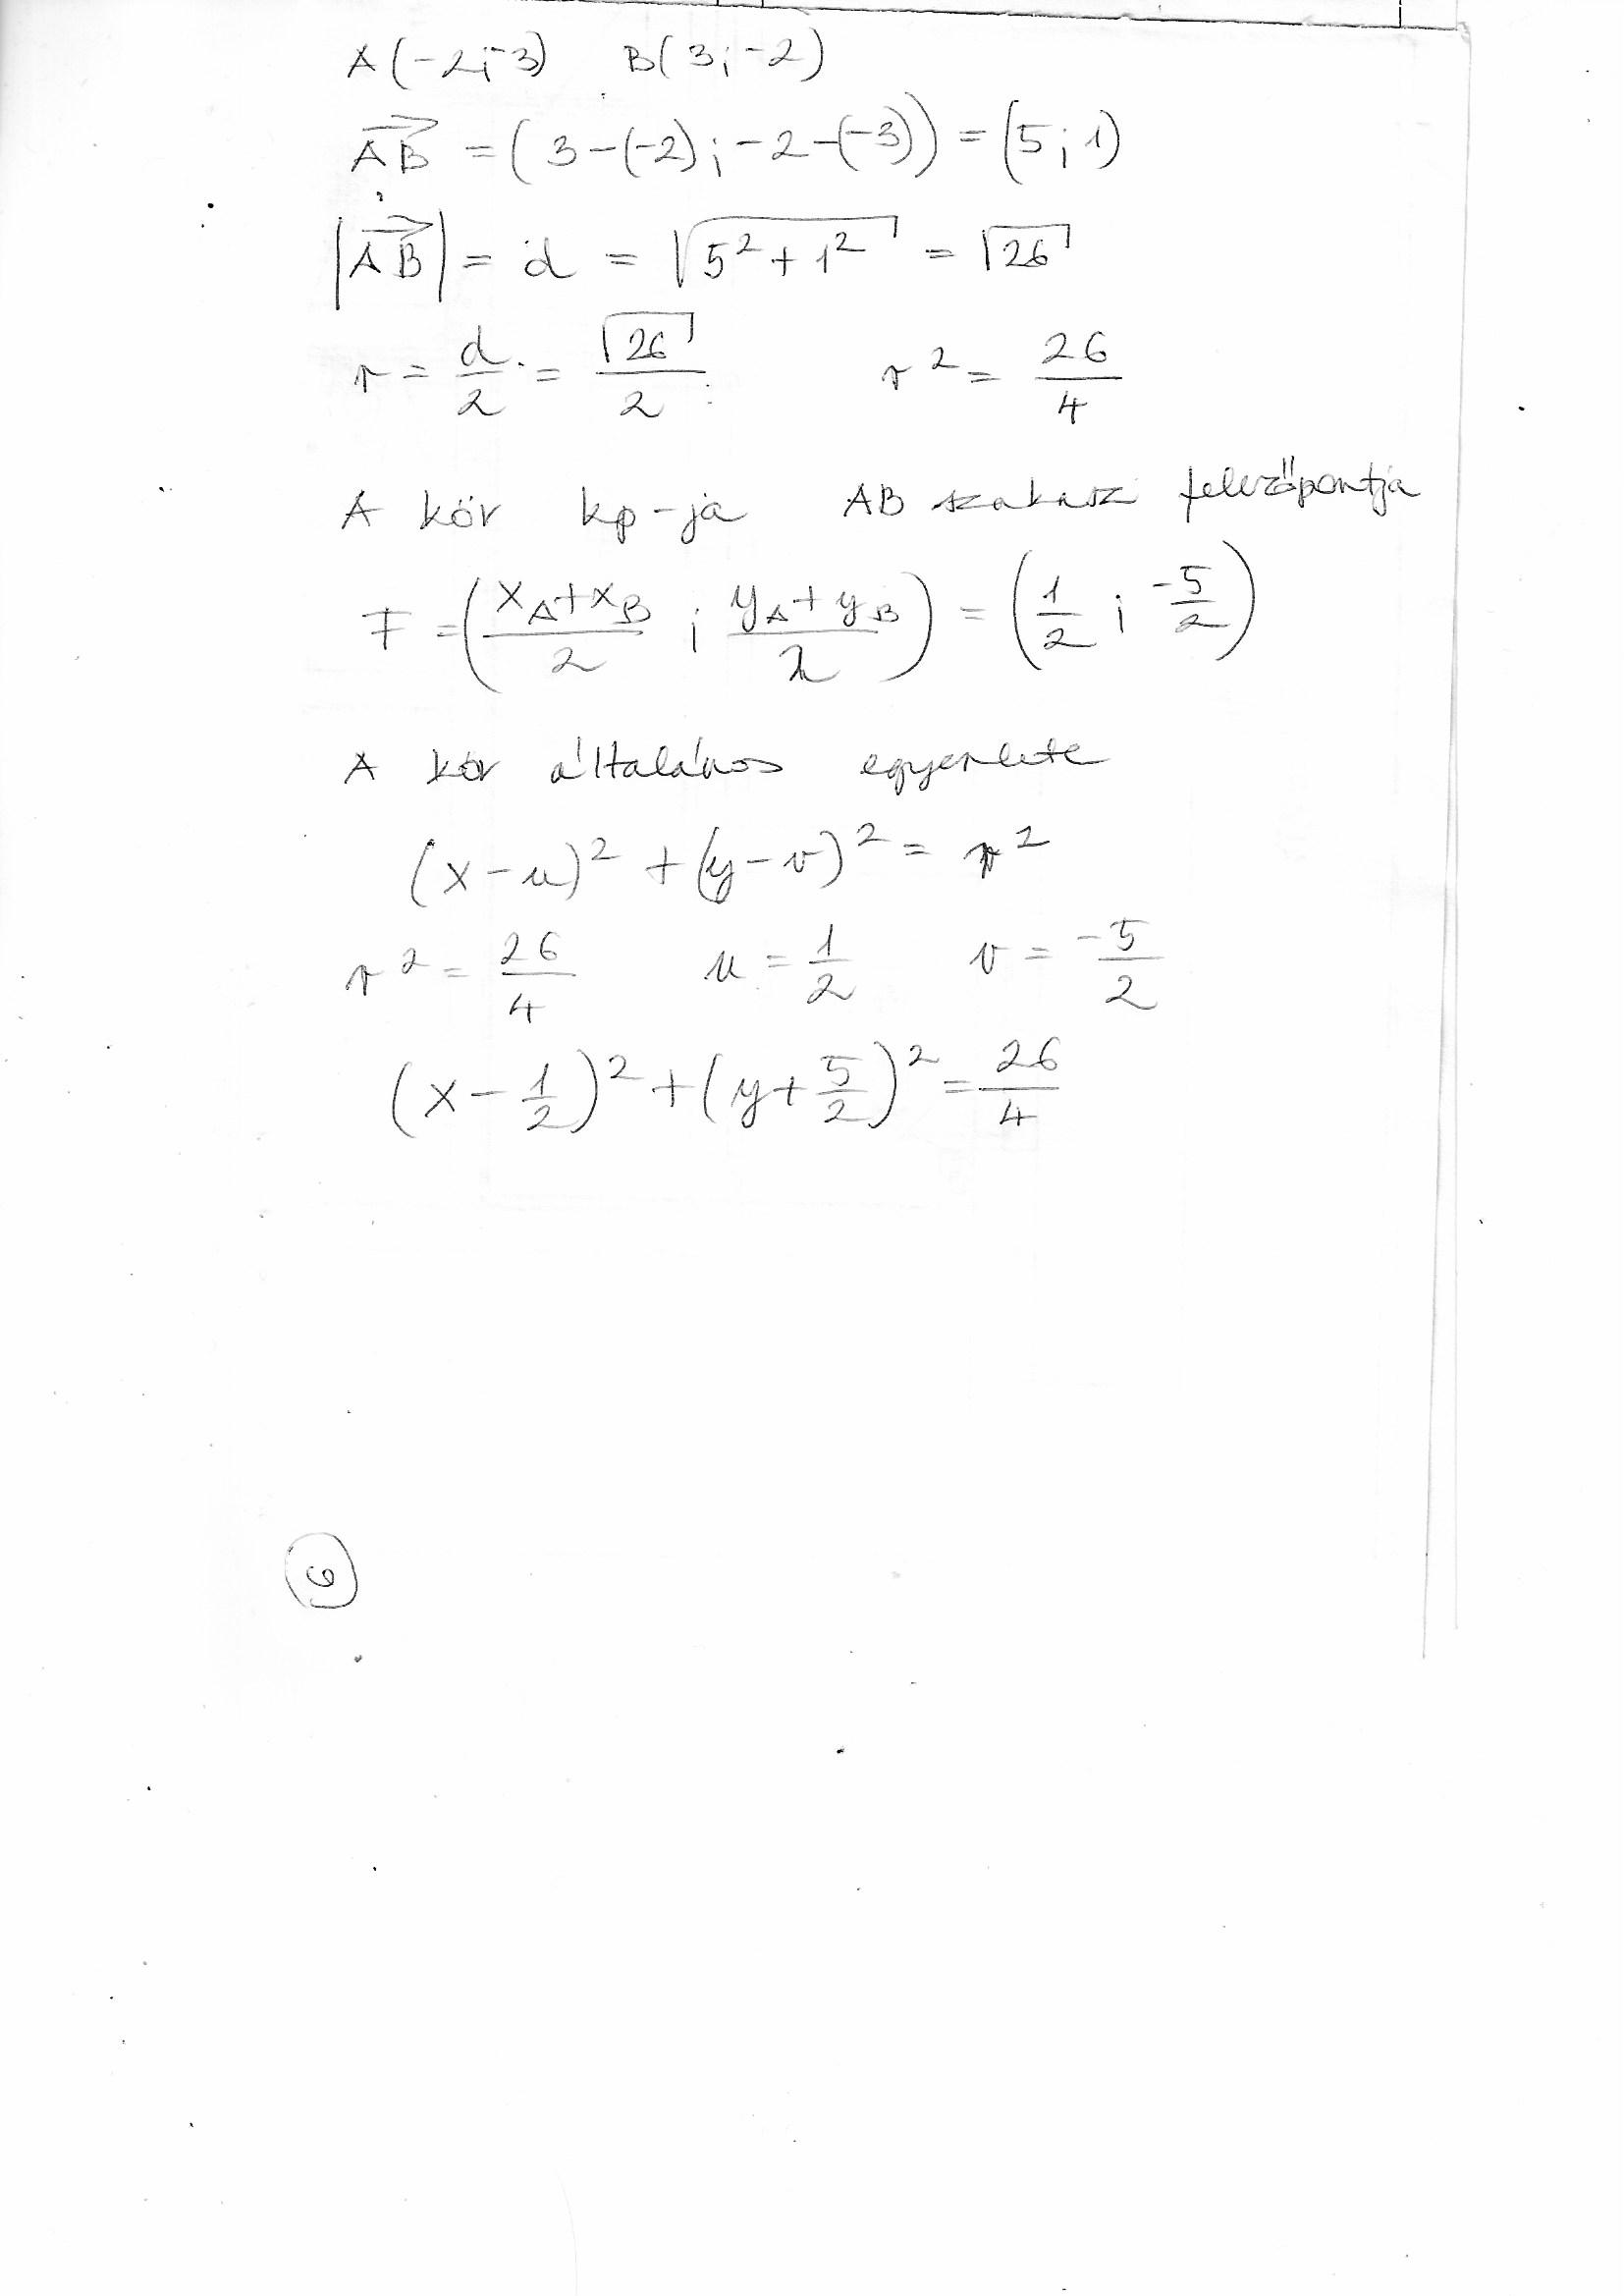 A(-2;-3) B(3;-2)
AB = (3-(-2);-2-(-3)) = (5;1)
|AB| = d = √(5²+1²) = √26
r = d/2 = √26/2 r² = 26/4
A kör kp-ja AB szakasz felezőpontja
F = ((x_A+x_B)/2 ; (y_A+y_B)/2) = (1/2 ; -5/2)
A kör általános egyenlete
(x-u)² + (y-v)² = r²
r² = 26/4 u = 1/2 v = -5/2
(x-1/2)² + (y+5/2)² = 26/4
6